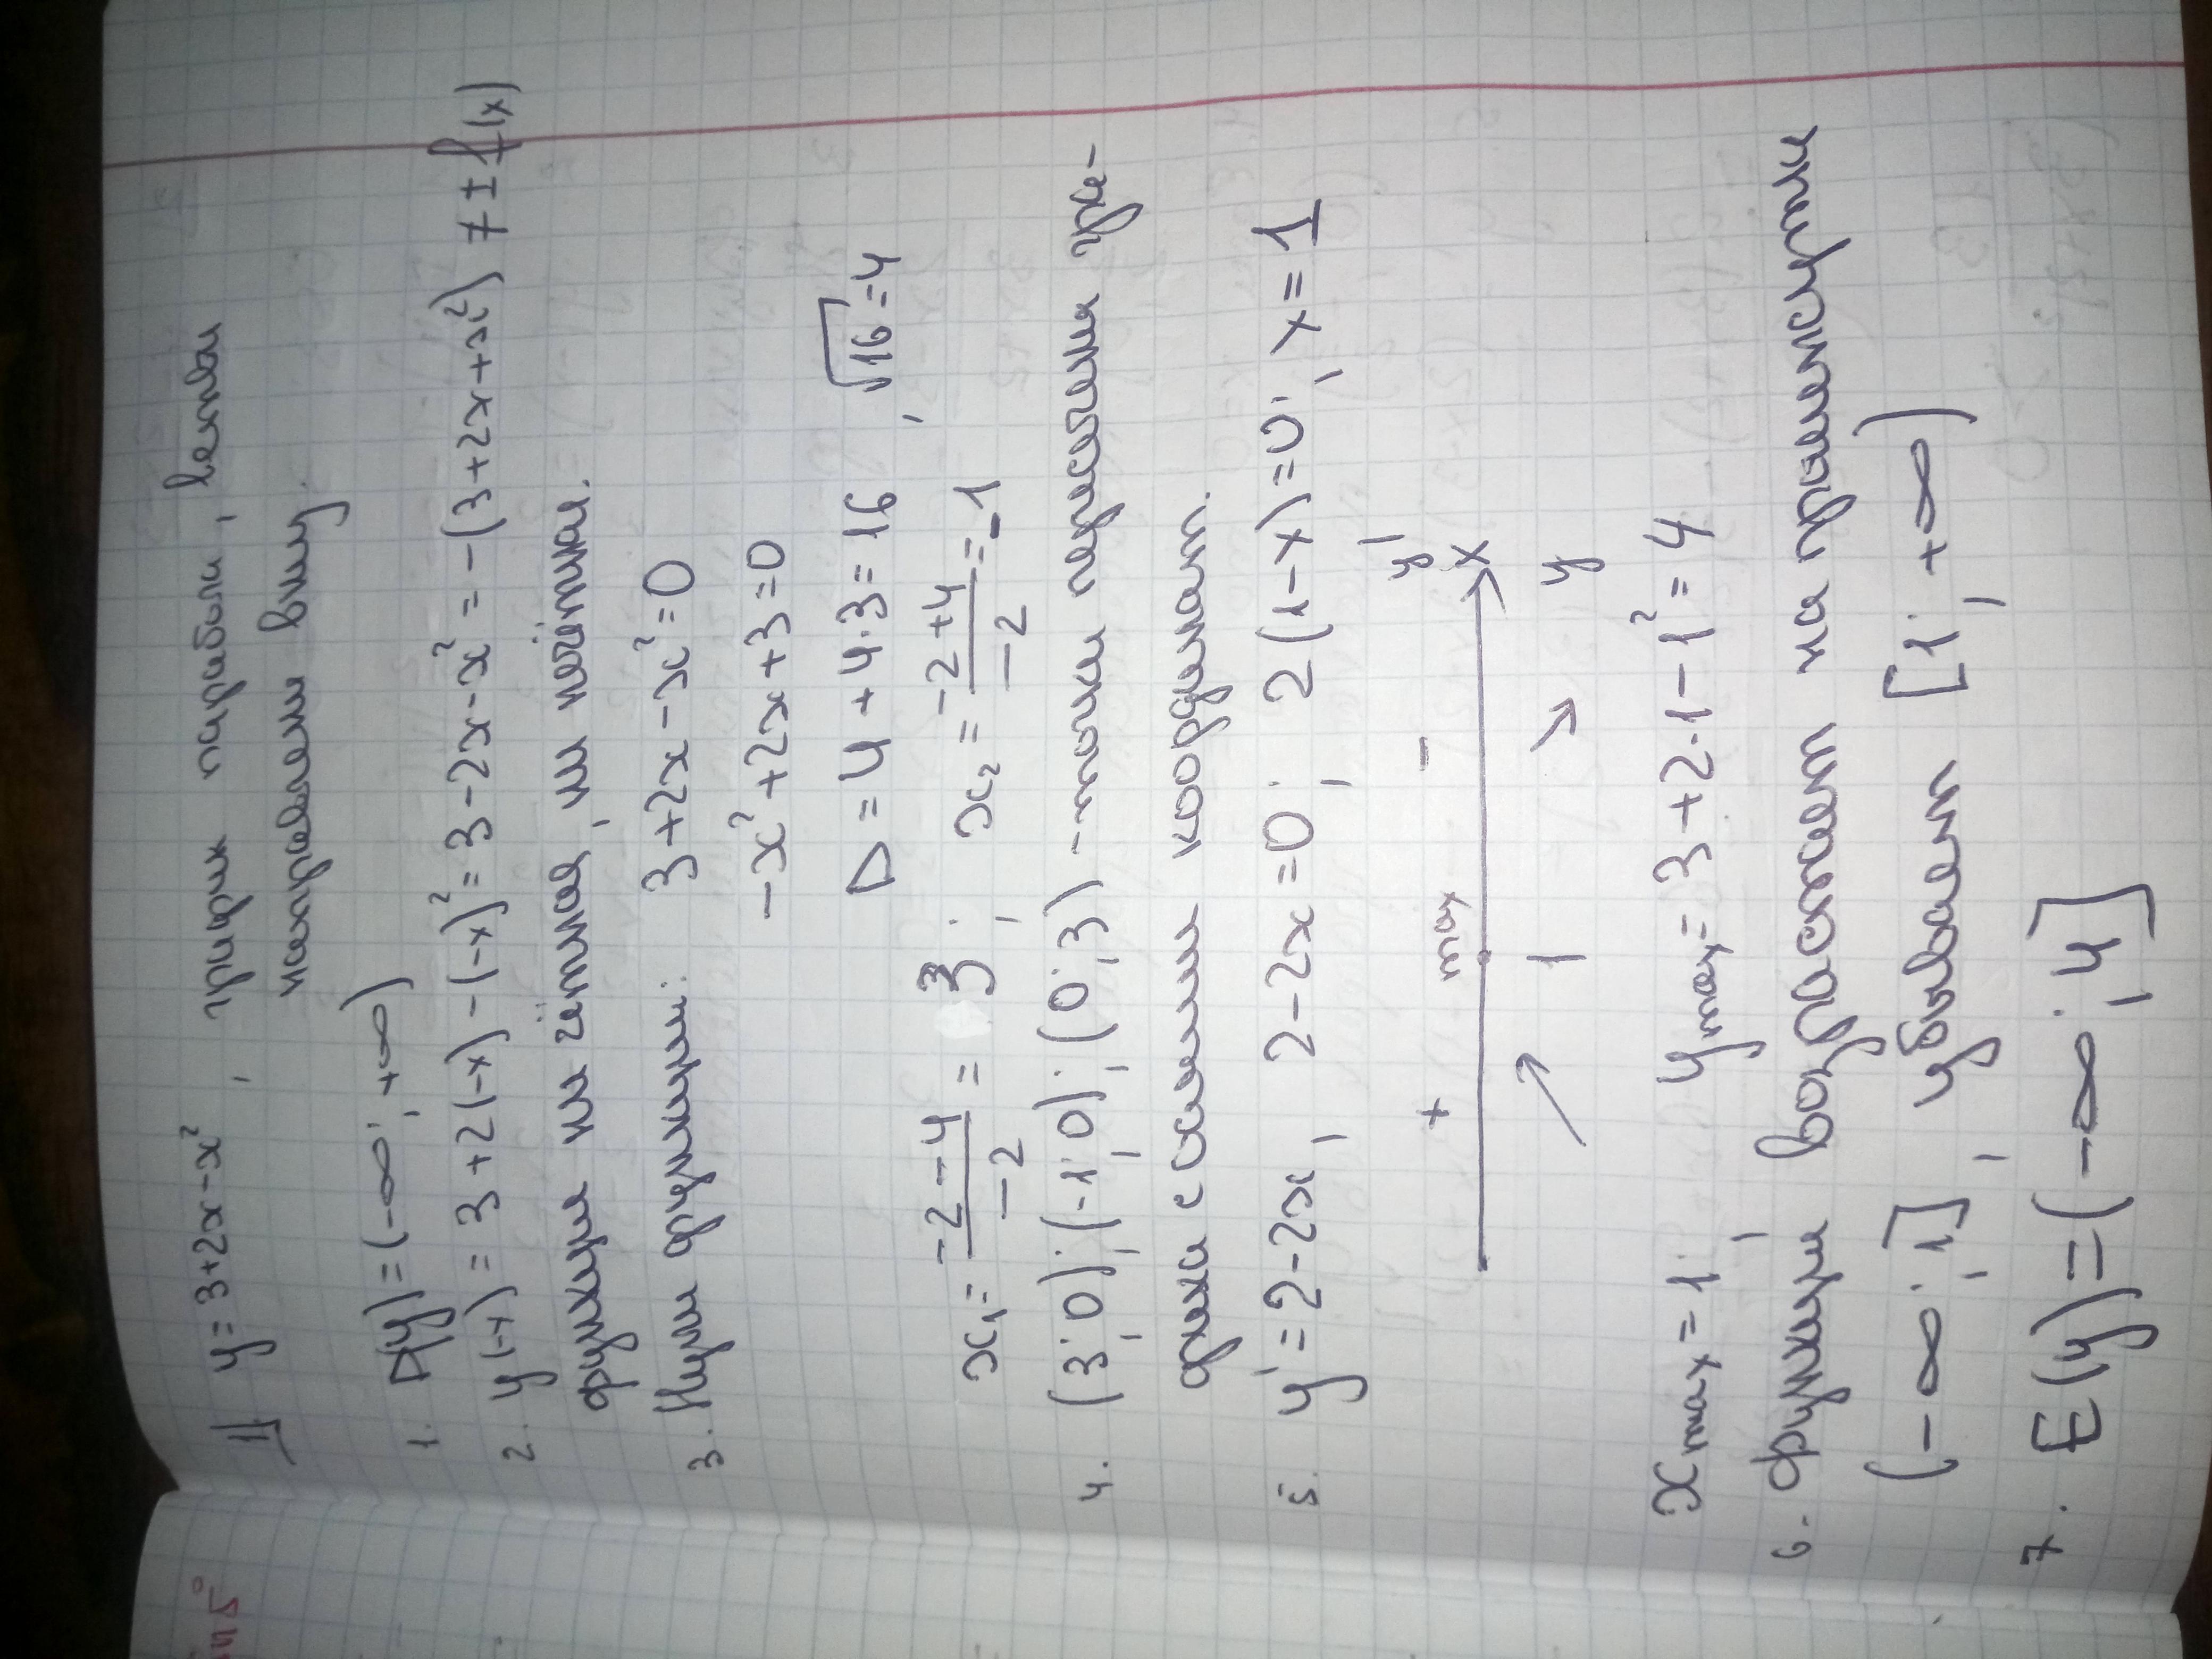 1 y = 3+2x-x², график параболы, ветви
направлены вниз.
1. D(y) = (-∞; +∞)
2. y(-x) = 3+2(-x)-(-x)² = 3-2x-x² = -(3+2x+x²) ≠ ± f(x)
функция ни чётная, ни нечётная.
3. Нули функции: 3+2x-x²=0
-x²+2x+3=0
D = 4+4·3=16, √16=4
x₁ = (-2-4)/(-2) = 3; x₂ = (-2+4)/(-2) = -1
4. (3;0); (-1;0); (0;3) - точки пересечения гра-
фика с осями координат.
5. y' = 2-2x, 2-2x=0; 2(1-x)=0; x=1
+ max - y'
x
↗ 1 ↘ y
x max = 1; y max = 3+2·1-1² = 4
6. функция возрастает на промежутке
(-∞;1], убывает [1;+∞)
7. E(y)=(-∞;4]